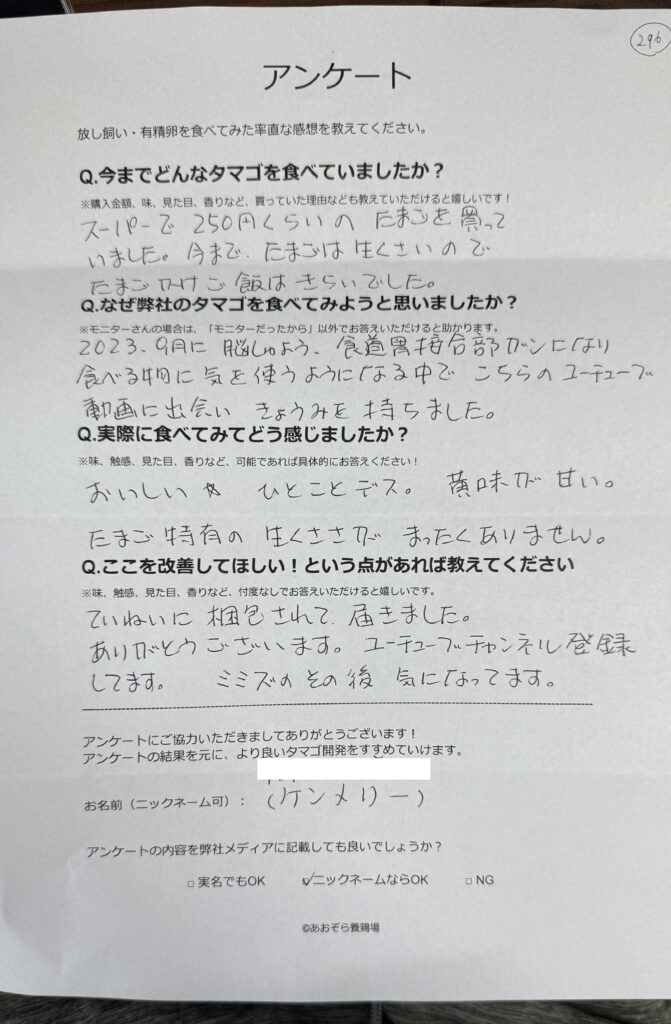 296
アンケート
放し飼い・有精卵を食べてみた率直な感想を教えてください。
Q.今までどんなタマゴを食べていましたか？
※購入金額、味、見た目、香りなど、買っていた理由なども教えていただけると嬉しいです！
スーパーで 250円くらいの たまごを買って
いました。今まで、たまごは生くさいので
たまごかけご飯はきらいでした。
Q.なぜ弊社のタマゴを食べてみようと思いましたか？
※モニターさんの場合は、「モニターだったから」以外でお答えいただけると助かります。
2023.9月に 脳しゅよう、食道胃接合部ガンになり
食べる物に気を使うようになる中で こちらのユーチューブ
動画に出会い きょうみを持ちました。
Q.実際に食べてみてどう感じましたか？
※味、触感、見た目、香りなど、可能であれば具体的にお答えください！
おいしい ひとことデス。 黄味が甘い。
たまご特有の 生くささが まったくありません。
Q.ここを改善してほしい！という点があれば教えてください
※味、触感、見た目、香りなど、忖度なしでお答えいただけると嬉しいです。
ていねいに 梱包されて、届きました。
ありがとうございます。ユーチューブチャンネル登録
してます。 ミミズのその後 気になってます。
アンケートにご協力いただきましてありがとうございます！
アンケートの結果を元に、より良いタマゴ開発をすすめていけます。
お名前（ニックネーム可）：（ケンメリー）
アンケートの内容を弊社メディアに記載しても良いでしょうか？
□ 実名でもOK ✓ニックネームならOK □ NG
©あおぞら養鶏場